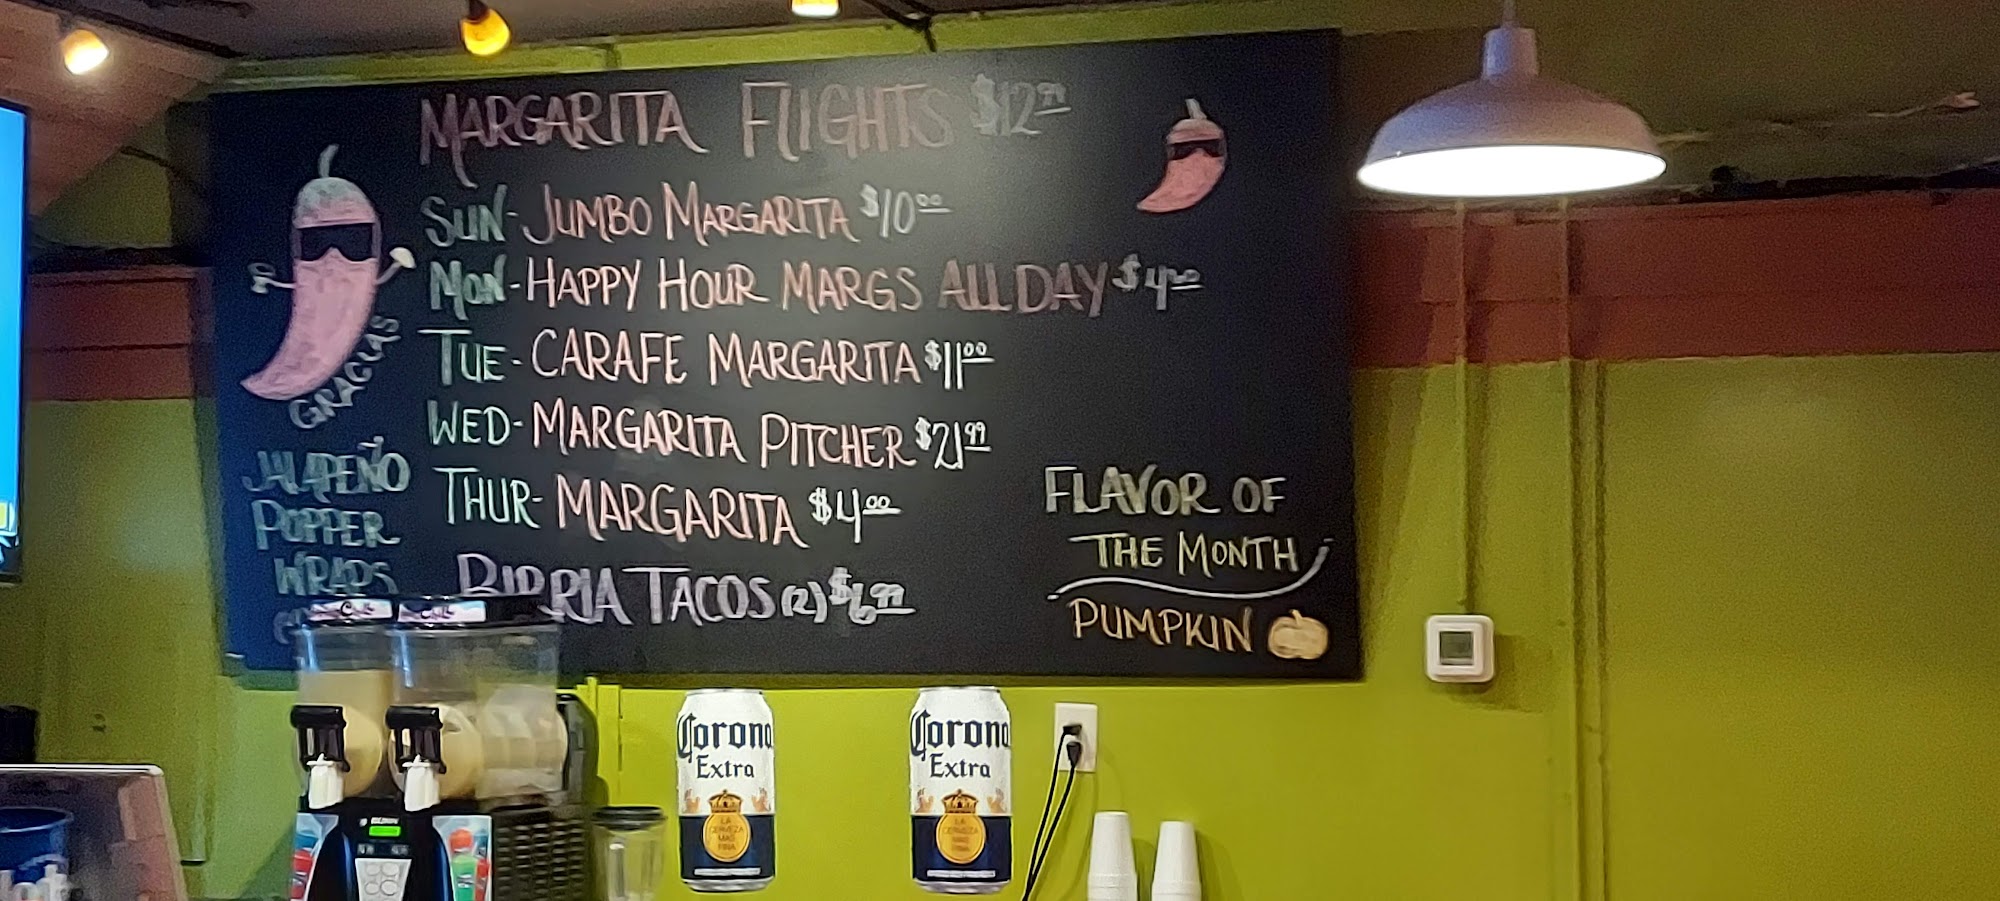 MARGARITA FLIGHTS $12.99
SUN- JUMBO MARGARITA $10.00
MON- HAPPY HOUR MARGS ALL DAY $4.00
TUE- CARAFE MARGARITA $11.00
WED- MARGARITA PITCHER $21.99
THUR- MARGARITA $4.00
BIRRIA TACOS (2) $6.99
GRACIAS
JALAPEÑO
POPPER
WRAPS
FLAVOR OF
THE MONTH
PUMPKIN
Corona
Extra
LA
CERVEZA
MAS
FINA
Corona
Extra
LA
CERVEZA
MAS
FINA